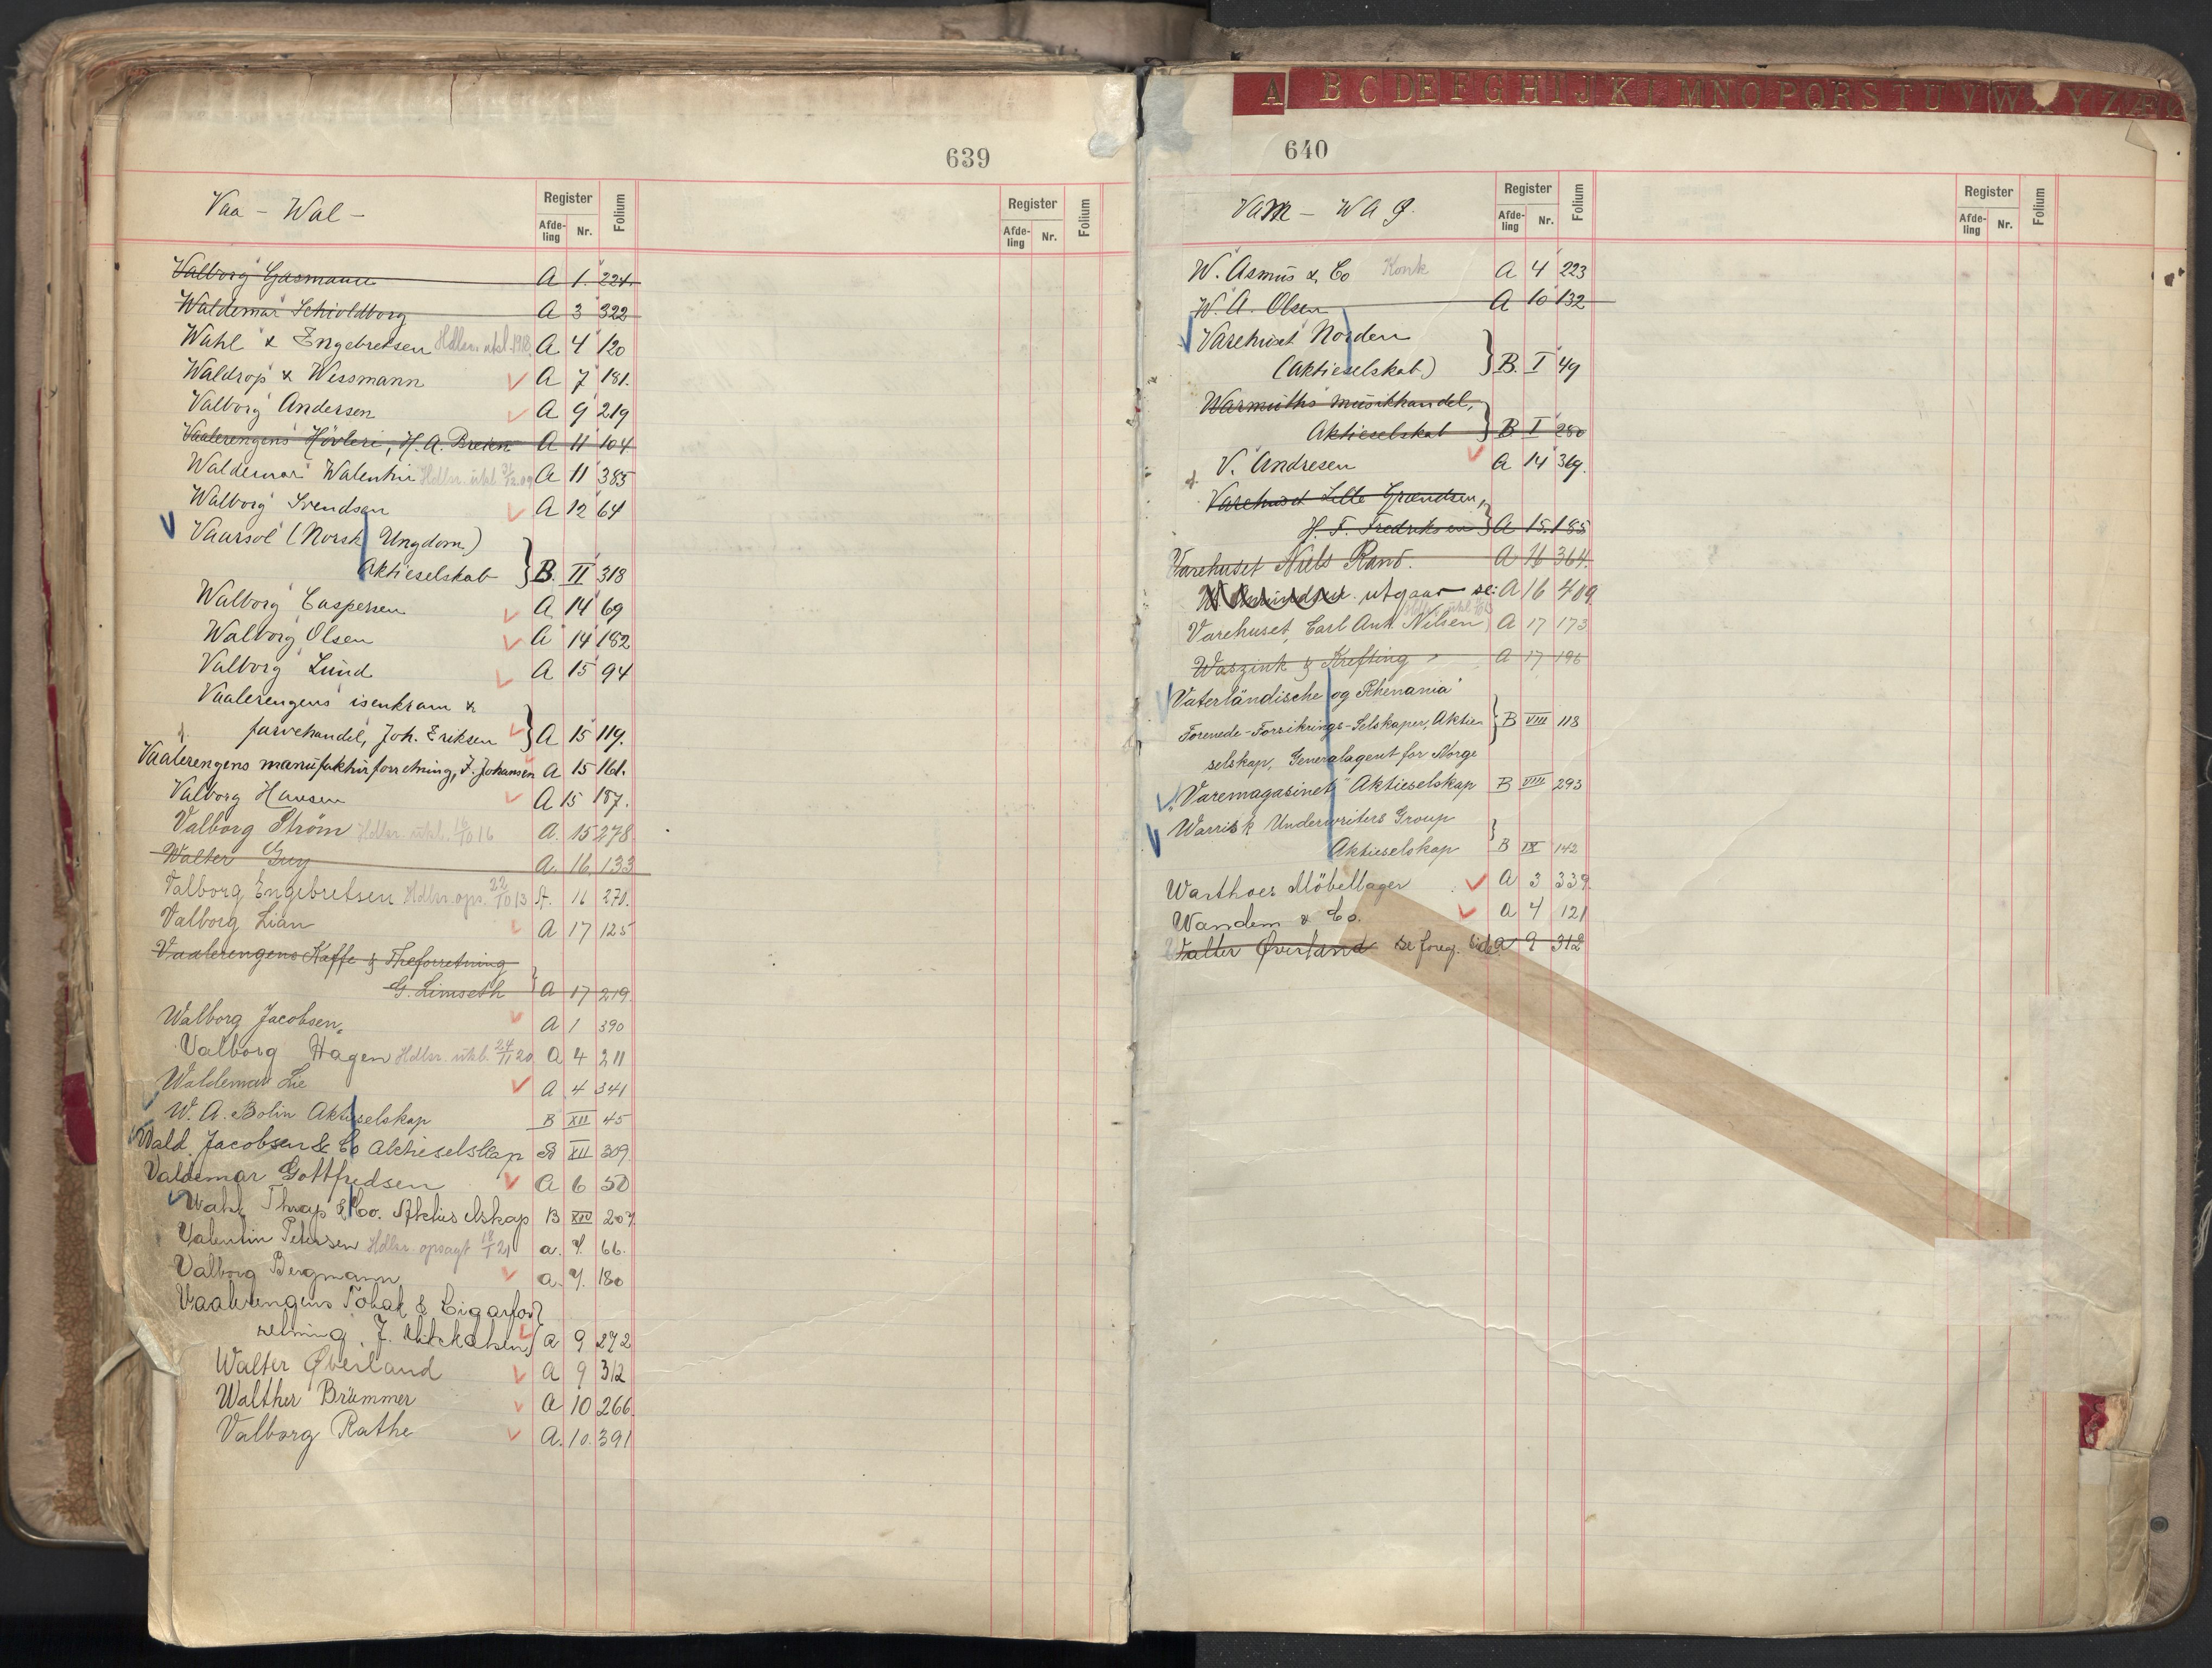 639
Vaa - Wal -
Register
Afde-
ling
Nr.
Folium
Register
Afde-
ling
Nr.
Folium
Valborg Gasmann A 1. 224.
Waldemar Schioldborg A 3 322
Wahl & Engebretsen Hdlsr. utl. 1918. A 4 120
Waldrop & Wessmann A 7 181.
Valborg Andersen A 9 219
Vaalerengens Høvleri, H. A. Breien A 11 104
Waldemar Walentin Hdlsr. utl. A 11 385
Walborg Svendsen A 12 64
Vaarsol (Norsk Ungdom)
Aktieselskab } B. II 318
Walborg Caspersen A 14 69
Walborg Olsen A 14 182
Valborg Lund A 15 94
Vaalerengens isenkram &
farvehandel, Joh. Eriksen } A 15 119.
Vaalerengens manufakturforretning, J. Johansen A 15 161.
Valborg Hansen A 15 187.
Valborg Strøm Hdlsr. utl. 16/10 16 A. 15 278
Walter Guy A. 16. 133
Valborg Engebretsen Hdlsr. ops. 22/10 13 A. 16 270.
Valborg Lian A 17 125
Vaalerengens Kaffe & Theforretning
G. Limseth } A 17 219.
Walborg Jacobsen. A 1 390
Valborg Hagen Hdlsr. utl. 24/11 20 A 4 211
Waldemar Lie A 4 341
W. A. Bolin Aktieselskap B XII 45
Wald. Jacobsen & Co Aktieselskap B XII 309.
Valdemar Gottfredsen A 6 50
Wahl, Thrap & Co. Aktieselskap B XIV 207.
Valentin Petersen Hdlsr. opsagt 18/1 21 a. 7. 66.
Valborg Bergmann a. 7. 180
Vaalerengens Tobak & Cigarfor-
retning, J. } a 9 272
Walter Øverland A 9 312
Walther Brümmer A 10 266.
Valborg Rathe A. 10. 391
A B C D E F G H I J K L M N O P Q R S T U V W X Y Z Æ
640
Vam - Waq.
Register
Afde-
ling
Nr.
Folium
Register
Afde-
ling
Nr.
Folium
W. Asmus & Co Konk A 4 223
W. A. Olsen A 10 132
Varehuset Norden
(Aktieselskab) } B. I 49
Warmuths musikhandel,
Aktieselskab } B I 280
V. Andresen A 14 369.
Varehuset Lille Grændsen,
H. F. Fredriksen } A 15. 185
Varehuset Niels Rand. A 16 364.
utgaar se: A 16 409
Varehuset, Carl Ant. Nilsen A 17 173
Waszink & Krefting A 17 196
"Vaterländische og Rhenania"
Forenede-Forsikrings-Selskaper, Aktien } B VIII 118
selskap, Generalagent for Norge
"Varemagasinet" Aktieselskap B VIII 293
Warrisk Underwriters Group
Aktieselskap } B IX 142
Warthoes Møbellager A 3 339.
Wandem & Co. A 4 121
Walter Øverland se foreg. side. a 9 312